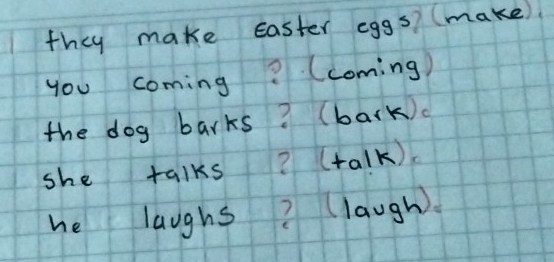 they make Easter eggs? (make).
you coming ? (coming)
the dog barks ? (bark).
she talks ? (talk).
he laughs ? (laugh).